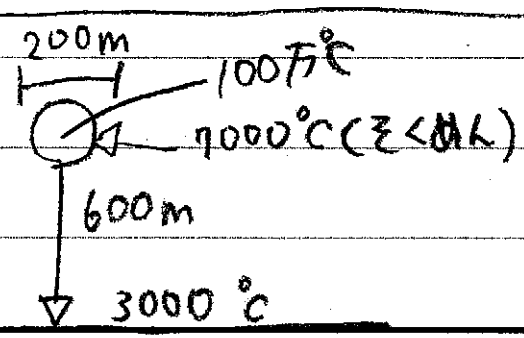 200m
100万℃
7000℃(そくめん)
600m
3000℃